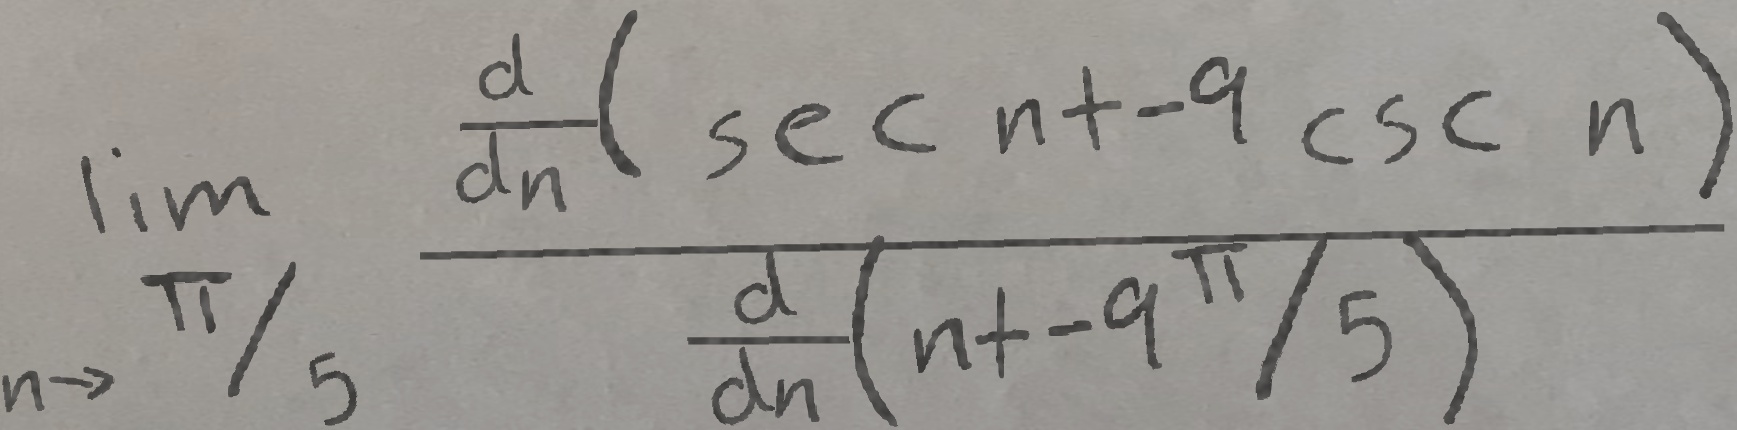 \lim_{n \to \pi/5} \frac{\frac{d}{dn}(\sec n + -9 \csc n)}{\frac{d}{dn}(n + -9\pi/5)}